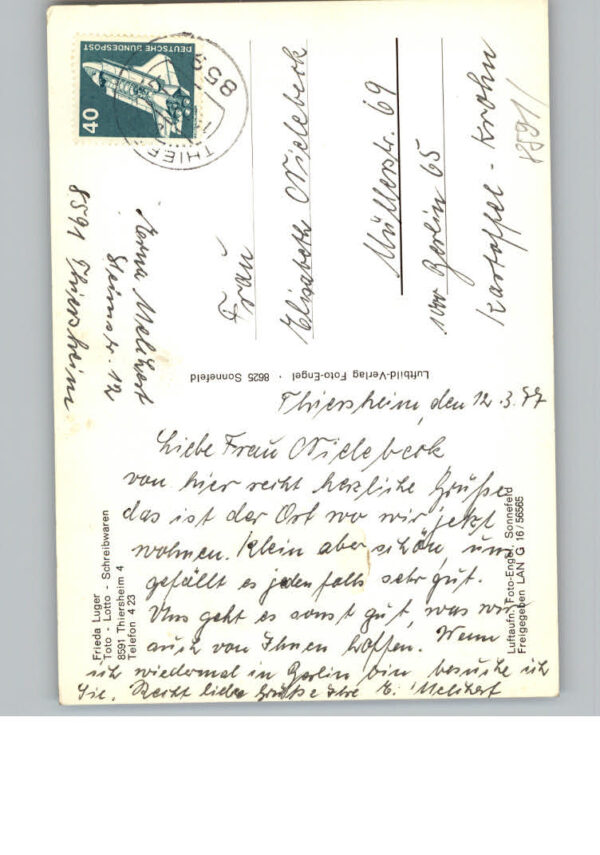 DEUTSCHE BUNDESPOST
40
859
THIER
Frau
Elisabeth Nielebock
Müllerstr. 69
1000 Berlin 65
Kartoffel - Krohn
8591/
Melihert
Steinstr. 12
8591 Thiersheim
Luftbild-Verlag Foto-Engel · 8625 Sonnefeld
Thiersheim, den 12.3.77
Liebe Frau Nielebock
von hier recht herzliche Grüße
das ist der Ort wo wir jetzt
wohnen. Klein aber schön, uns
gefällt es jedenfalls sehr gut.
Uns geht es sonst gut, was wir
auch von Ihnen hoffen. Wenn
ich wiedermal in Berlin bin, besuche ich
Sie. Recht liebe Grüße Ihre E. Melihert
Frieda Luger
Toto - Lotto - Schreibwaren
8591 Thiersheim 4
Telefon 4 23
Luftaufn.: Foto-Engel, Sonnefeld
Freigegeben LAN G 16/56565